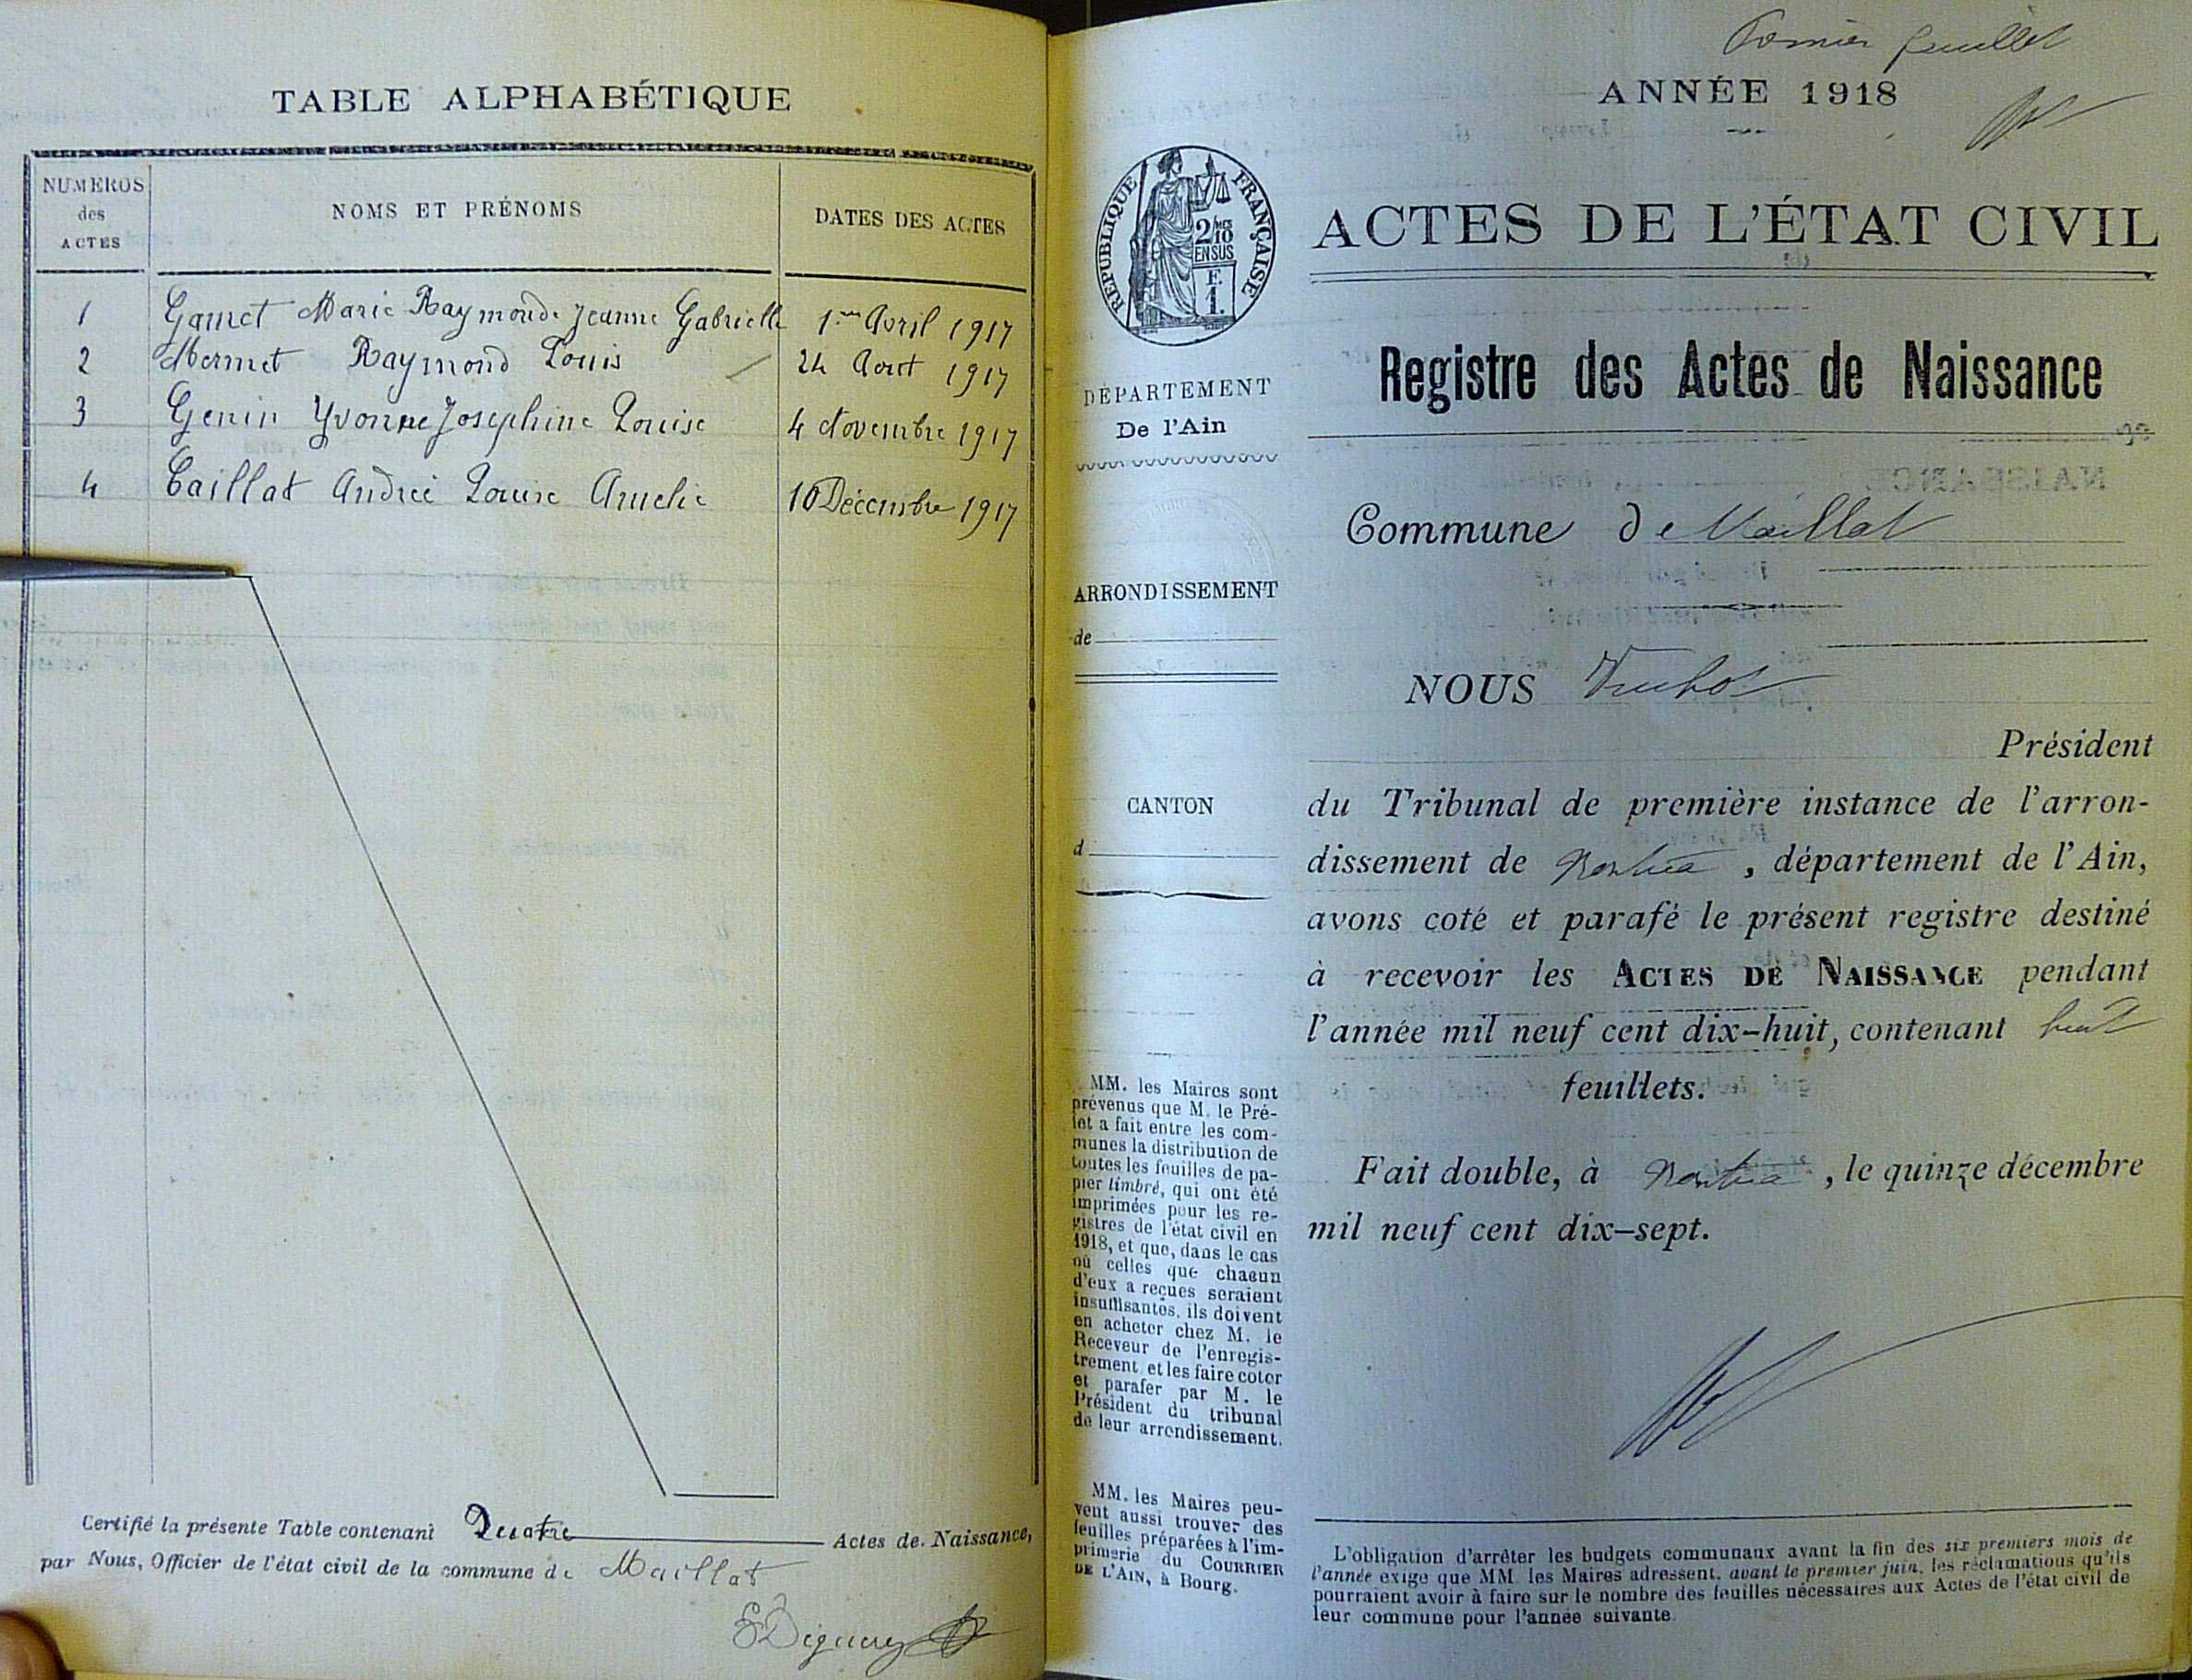 TABLE ALPHABÉTIQUE
NUMÉROS des ACTES
NOMS ET PRÉNOMS
DATES DES ACTES
1 Gamet Marie Raymonde Jeanne Gabrielle 1er Avril 1917
2 Mermet Raymond Louis 24 Aout 1917
3 Genin Yvonne Josephine Louise 4 Novembre 1917
4 Caillat Andreé Louise Amelie 10 Décembre 1917
Certifié la présente Table contenant Quatre Actes de Naissance,
par Nous, Officier de l'état civil de la commune de Maillat
feuillet
ANNÉE 1918
RÉPUBLIQUE FRANÇAISE
2/10
EN SUS
F.
1.
ACTES DE L'ÉTAT CIVIL
Registre des Actes de Naissance
DÉPARTEMENT
De l'Ain
Commune de Maillat
ARRONDISSEMENT
de
NOUS
Président
CANTON
d
du Tribunal de première instance de l'arron-
dissement de Nantua, département de l'Ain,
avons coté et parafé le présent registre destiné
à recevoir les ACTES DE NAISSANCE pendant
l'année mil neuf cent dix-huit, contenant huit
feuillets.
Fait double, à Nantua, le quinze décembre
mil neuf cent dix-sept.
MM. les Maires sont
prévenus que M. le Pré-
fet a fait entre les com-
munes la distribution de
toutes les feuilles de pa-
pier timbré, qui ont été
imprimées pour les re-
gistres de l'état civil en
1918, et que, dans le cas
où celles que chacun
d'eux a reçues seraient
insuffisantes, ils doivent
en acheter chez M. le
Receveur de l'enregis-
trement et les faire coter
et parafer par M. le
Président du tribunal
de leur arrondissement.
MM. les Maires peu-
vent aussi trouver des
feuilles préparées à l'im-
primerie du COURRIER
DE L'AIN, à Bourg.
L'obligation d'arrêter les budgets communaux avant la fin des six premiers mois de
l'année exige que MM. les Maires adressent, avant le premier juin, les réclamations qu'ils
pourraient avoir à faire sur le nombre des feuilles nécessaires aux Actes de l'état civil de
leur commune pour l'année suivante.